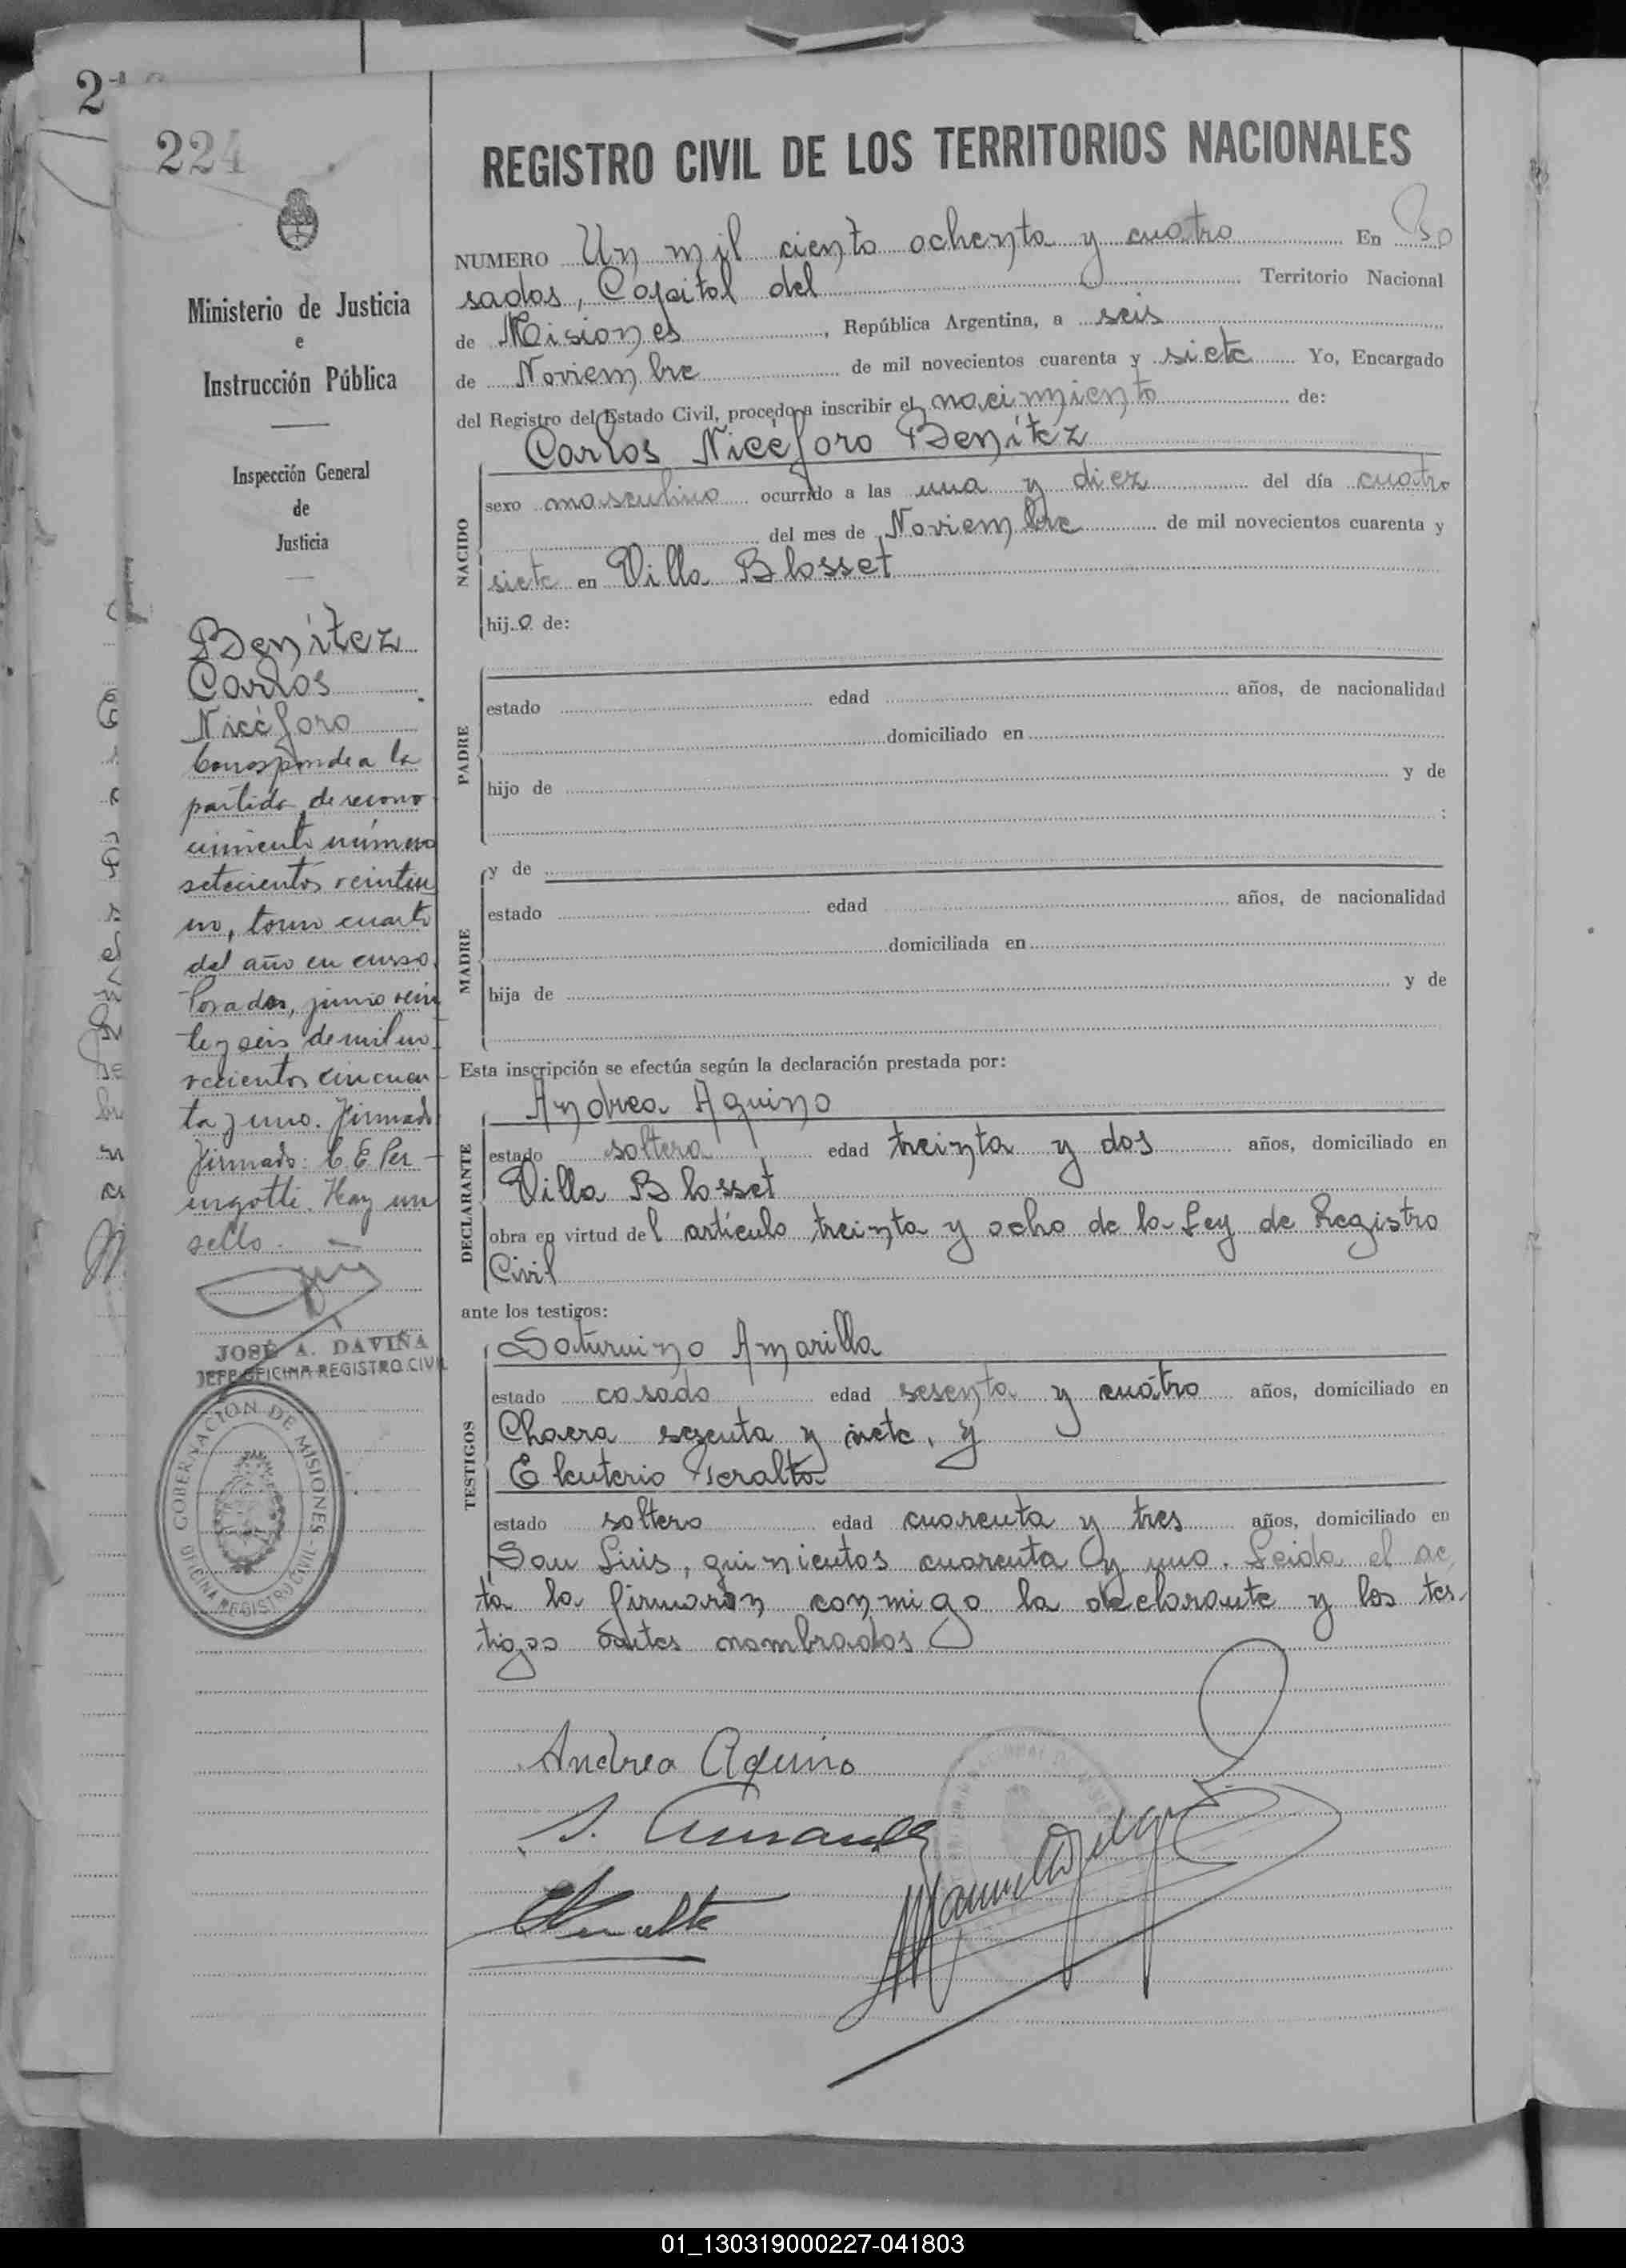 224
Ministerio de Justicia
e
Instrucción Pública
Inspección General
de
Justicia
Benítez
Carlos
Nicéforo
Corresponde a la
partida de recono
cimiento número
setecientos veintiu
no, tomo cuarto
del año en curso.
Posadas, junio vein
te y seis de mil no
vecientos cincuen
ta y uno. Firmado
Firmado: C. E. Per
ugotti. Hay un
sello. —
JOSÉ A. DAVIÑA
JEFE OFICINA REGISTRO CIVIL
GOBERNACIÓN DE MISIONES
OFICINA REGISTRO CIVIL
REGISTRO CIVIL DE LOS TERRITORIOS NACIONALES
NUMERO Un mil ciento ochenta y cuatro En Po
sadas, Capital del Territorio Nacional
de Misiones, República Argentina, a seis
de Noviembre de mil novecientos cuarenta y siete Yo, Encargado
del Registro del Estado Civil, procedo a inscribir el nacimiento de:
Carlos Nicéforo Benítez
NACIDO
sexo masculino ocurrido a las una y diez del día cuatro
del mes de Noviembre de mil novecientos cuarenta y
siete en Villa Blosset
hijo de:
PADRE
estado edad años, de nacionalidad
domiciliado en
hijo de y de
:
MADRE
y de
estado edad años, de nacionalidad
domiciliada en
hija de y de
Esta inscripción se efectúa según la declaración prestada por:
DECLARANTE
Andrea Aquino
estado soltera edad treinta y dos años, domiciliado en
Villa Blosset
obra en virtud del artículo treinta y ocho de la Ley de Registro
Civil
ante los testigos:
TESTIGOS
Saturnino Amarilla
estado casado edad sesenta y cuatro años, domiciliado en
Chacra sesenta y siete, y
Eleuterio Peralta
estado soltero edad cuarenta y tres años, domiciliado en
San Luis, quinientos cuarenta y uno. Leida el ac
ta la firmaron conmigo la declarante y los tes-
tigos antes nombrados
Andrea Aquino
S. Amarilla
EPeralta
01_130319000227-041803